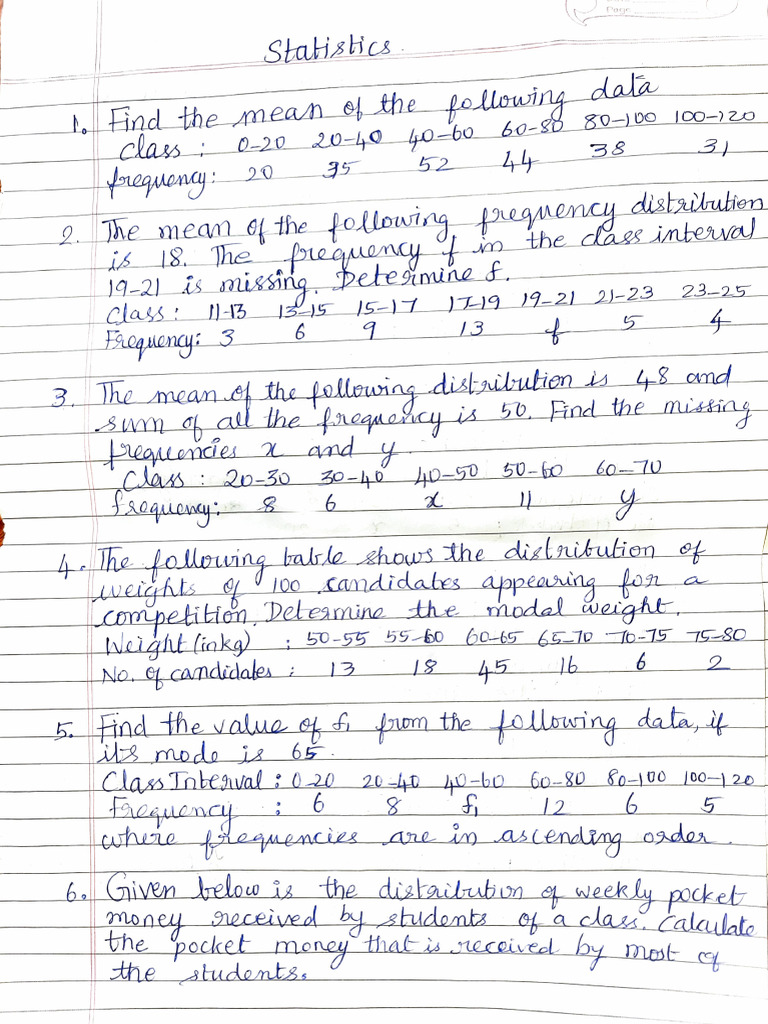 Page
Statistics.
1. Find the mean of the following data
Class : 0-20 20-40 40-60 60-80 80-100 100-120
frequency: 20 35 52 44 38 31
2. The mean of the following frequency distribution
is 18. The frequency f in the class interval
19-21 is missing. Determine f.
Class : 11-13 13-15 15-17 17-19 19-21 21-23 23-25
Frequency: 3 6 9 13 f 5 4
3. The mean of the following distribution is 48 and
sum of all the frequency is 50. Find the missing
frequencies x and y.
Class : 20-30 30-40 40-50 50-60 60-70
frequency: 8 6 x 11 y
4. The following table shows the distribution of
weights of 100 candidates appearing for a
competition. Determine the modal weight.
Weight (in kg) : 50-55 55-60 60-65 65-70 70-75 75-80
No. of candidates : 13 18 45 16 6 2
5. Find the value of f₁ from the following data, if
its mode is 65.
Class Interval : 0-20 20-40 40-60 60-80 80-100 100-120
Frequency : 6 8 f₁ 12 6 5
where frequencies are in ascending order.
6. Given below is the distribution of weekly pocket
money received by students of a class. Calculate
the pocket money that is received by most of
the students.